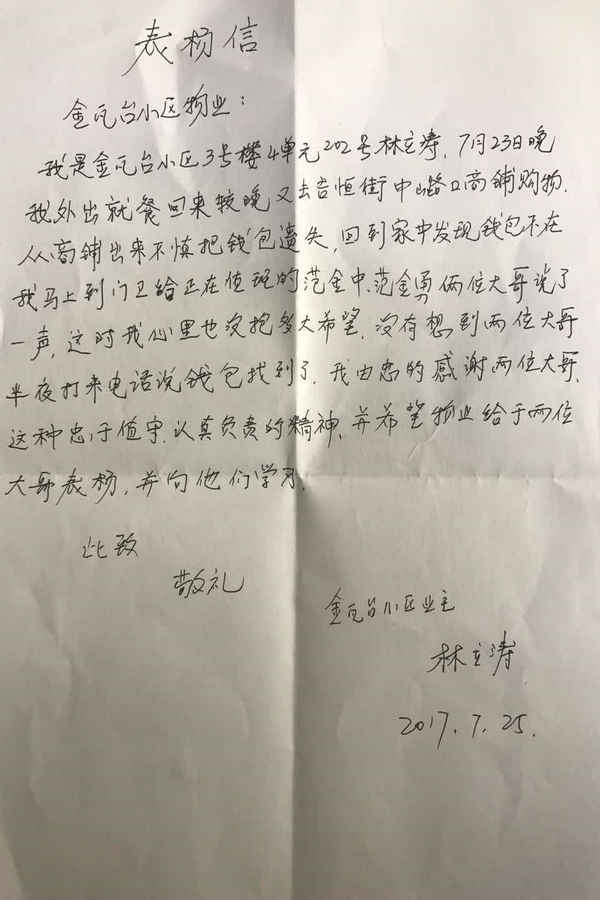 表杨信
金瓦台小区物业：
我是金瓦台小区3号楼4单元202号林立涛，7月23日晚
我外出就餐回来较晚又去吉恒街中山路口商铺购物.
从商铺出来不慎把钱包遗失，回到家中发现钱包不在
我马上到门卫给正在值班的范金中、范金勇俩位大哥说了
一声，这时我心里也没抱多大希望，没有想到两位大哥
半夜打来电话说钱包找到了，我由忠的感谢两位大哥，
这种忠于值守、认真负责的精神、并希望物业给于两位
大哥表杨，并向他们学习.
此致
敬礼
金瓦台小区业主
林立涛
2017.7.25.